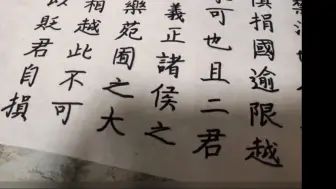 淫也
慎捐國逾限越
可也且二君
義正諸侯之
樂苑囿之大
相越此不可
以貶君自損